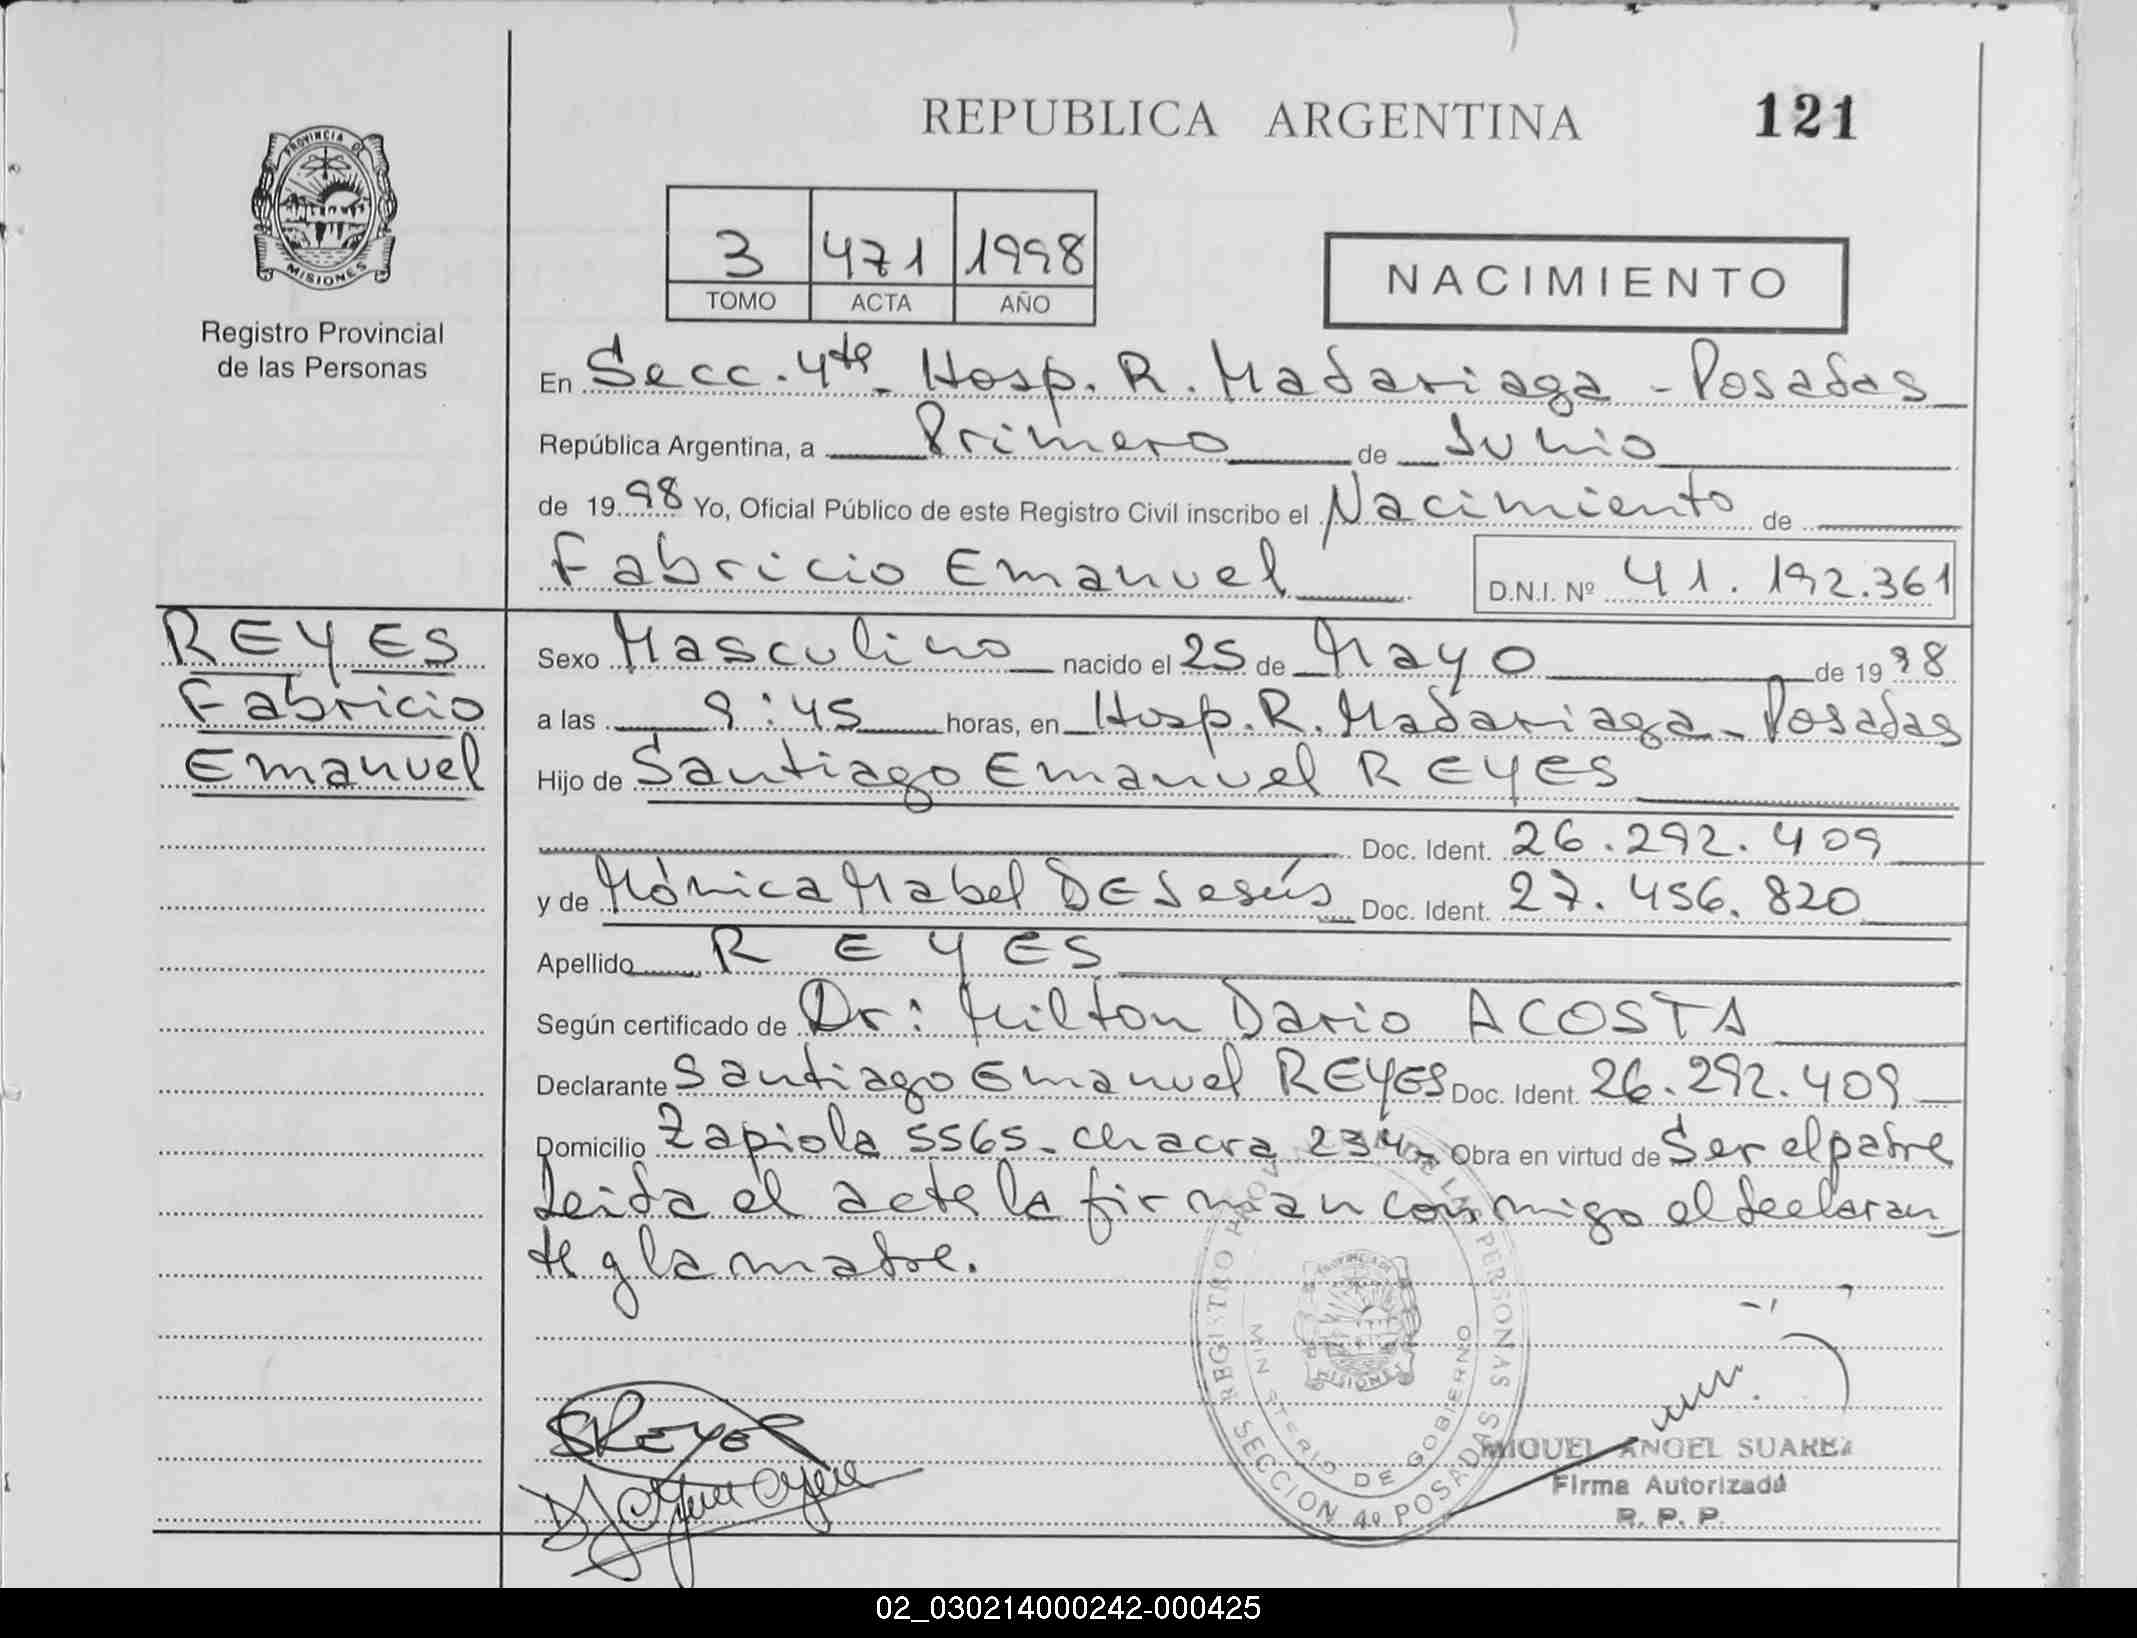 REPUBLICA ARGENTINA
121
PROVINCIA DE
MISIONES
Registro Provincial
de las Personas
3 471 1998
TOMO ACTA AÑO
NACIMIENTO
En Secc. 4ta. Hosp. R. Madariaga - Posadas
República Argentina, a Primero de Junio
de 1998 Yo, Oficial Público de este Registro Civil inscribo el Nacimiento de
Fabricio Emanuel D.N.I. Nº 41.192.361
REYES
Fabricio
Emanuel
Sexo Masculino nacido el 25 de Mayo de 1998
a las 9:45 horas, en Hosp. R. Madariaga - Posadas
Hijo de Santiago Emanuel REYES
Doc. Ident. 26.292.409
y de Mónica Mabel DE Jesús Doc. Ident. 27.456.820
Apellido REYES
Según certificado de Dr: Milton Dario ACOSTA
Declarante Santiago Emanuel REYES Doc. Ident. 26.292.409
Domicilio Zapiola 5565 - chacra 234 - Obra en virtud de Ser el padre
Leida el acta la firman conmigo el declaran
te y la madre.
SReyes
REGISTRO PROV DE LAS PERSONAS
MINISTERIO DE GOBIERNO
SECCION 4º POSADAS
MISIONES
MIGUEL ANGEL SUAREZ
Firma Autorizada
R. P. P.
02_030214000242-000425